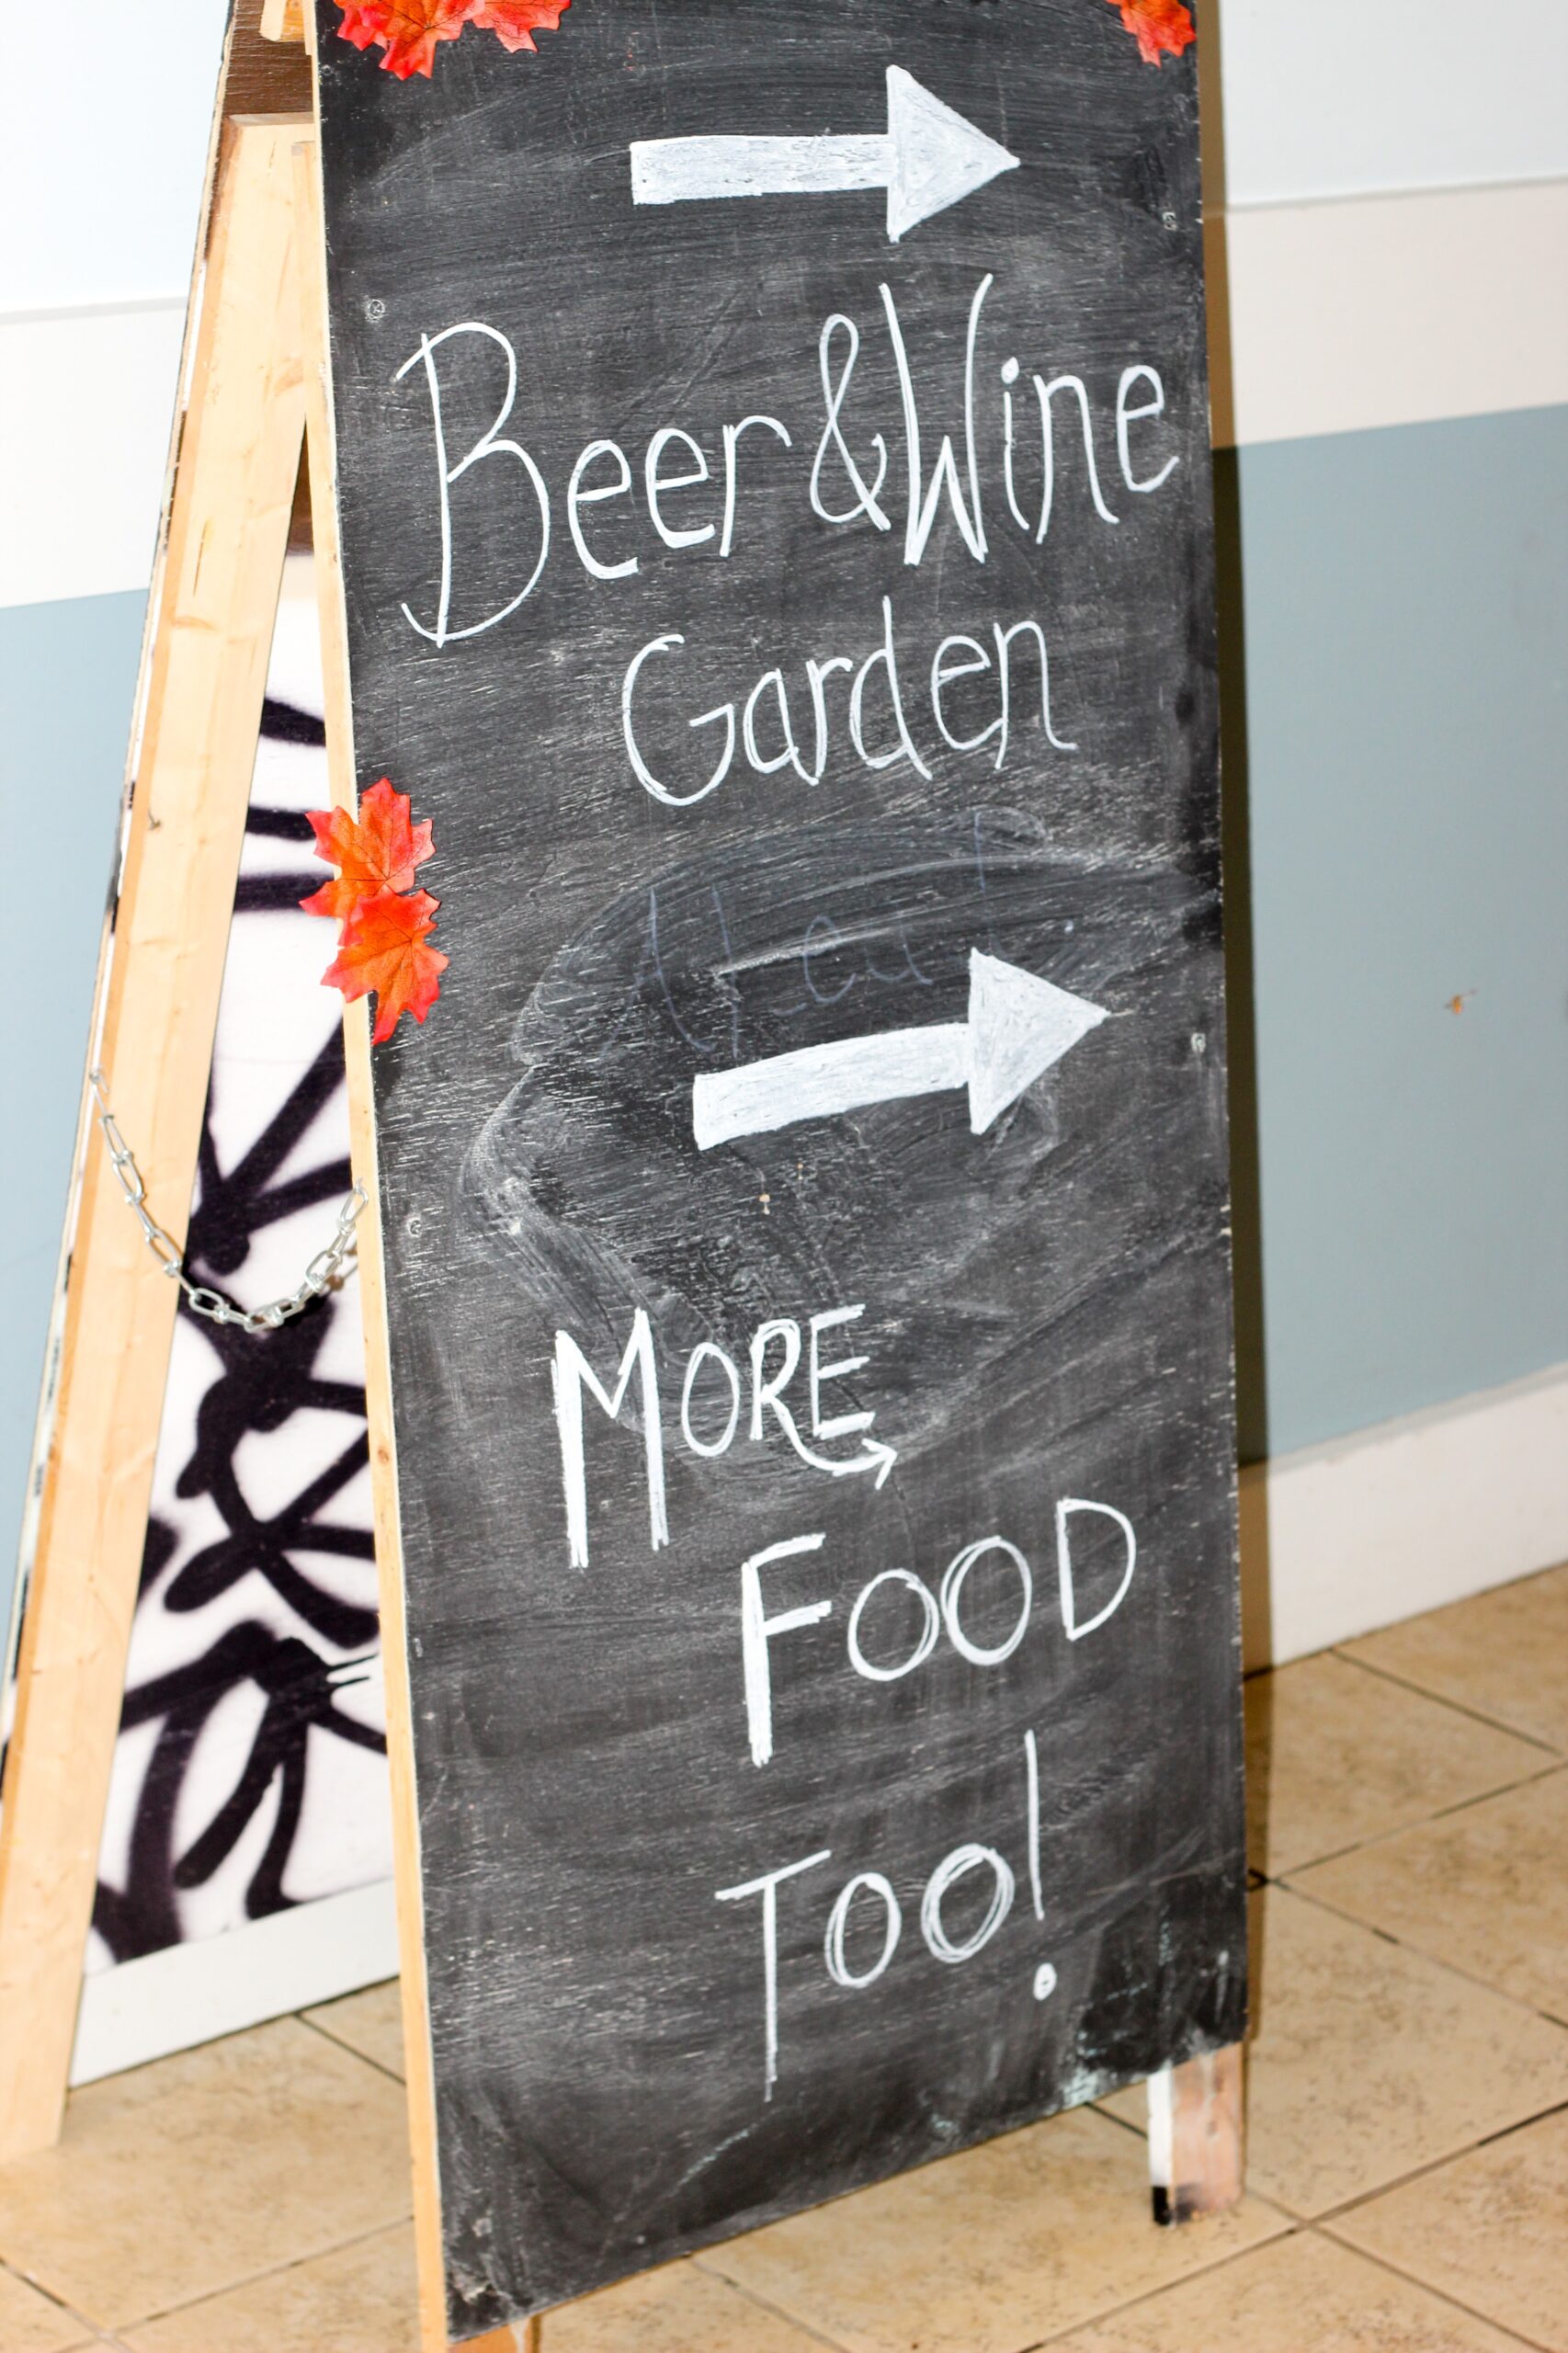 Beer & Wine
Garden
MORE
FOOD
TOO!